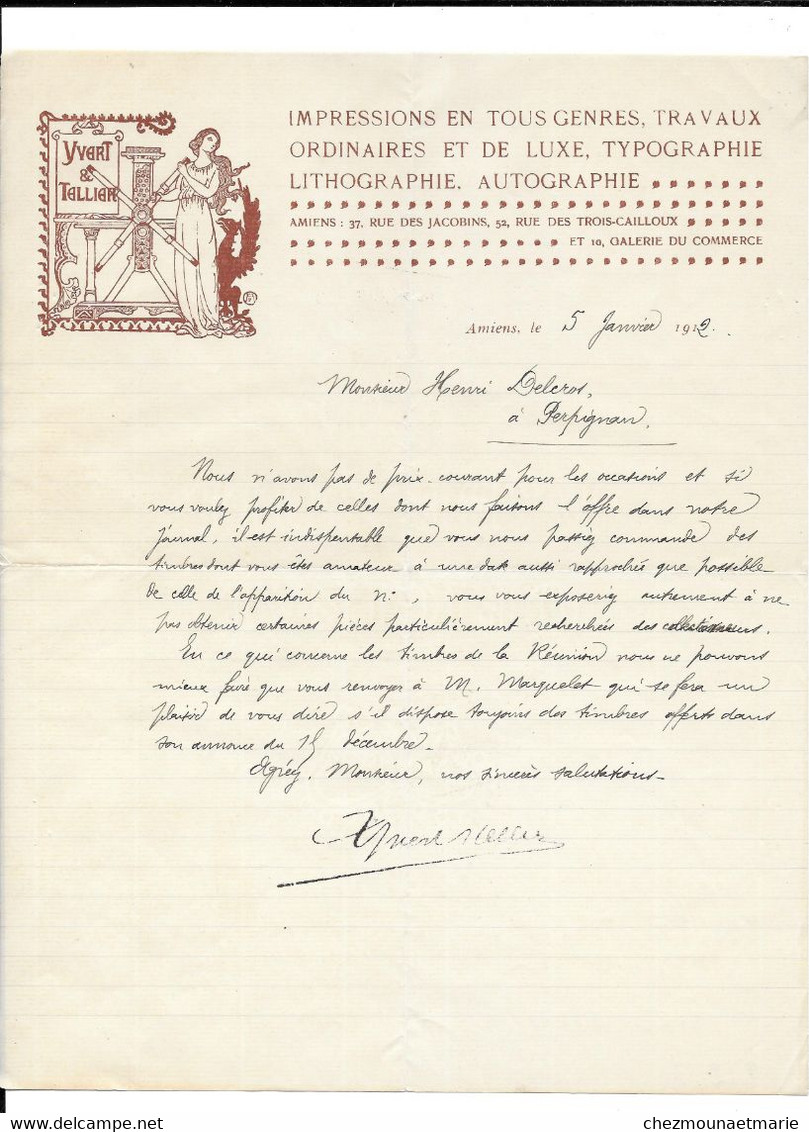 YVERT
&
TELLIER
IMPRESSIONS EN TOUS GENRES, TRAVAUX
ORDINAIRES ET DE LUXE, TYPOGRAPHIE
LITHOGRAPHIE, AUTOGRAPHIE
AMIENS : 37, RUE DES JACOBINS, 52, RUE DES TROIS-CAILLOUX
ET 10, GALERIE DU COMMERCE
Amiens, le 5 Janvier 1912.
Monsieur Henri Delcros,
à Perpignan.
Nous n'avons pas de prix-courant pour les occasions et si
vous voulez profiter de celles dont nous faisons l'offre dans notre
journal, il est indispensable que vous nous passiez commande des
timbres dont vous êtes amateur à une date aussi rapprochée que possible
de celle de l'apparition du N:, vous vous exposeriez autrement à ne
pas obtenir certaines pièces particulièrement recherchées des collectionneurs.
En ce qui concerne les timbres de la Réunion nous ne pouvons
mieux faire que vous renvoyer à M. Marquelet qui se fera un
plaisir de vous dire s'il dispose toujours des timbres offerts dans
son annonce du 15 décembre.
Agréez, Monsieur, nos sincères salutations.
Yvert & Tellier
chezmounaetmarie